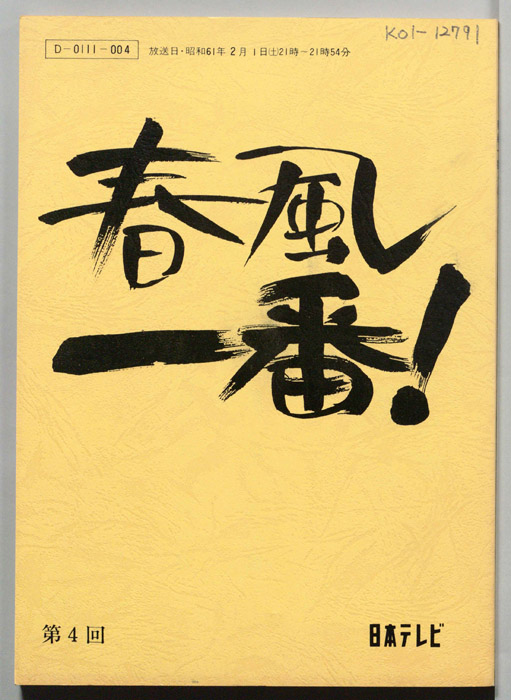 KO1-12791
D-0111-004 放送日・昭和61年2月1日(土)21時~21時54分
春風
一番!
第4回 日本テレビ